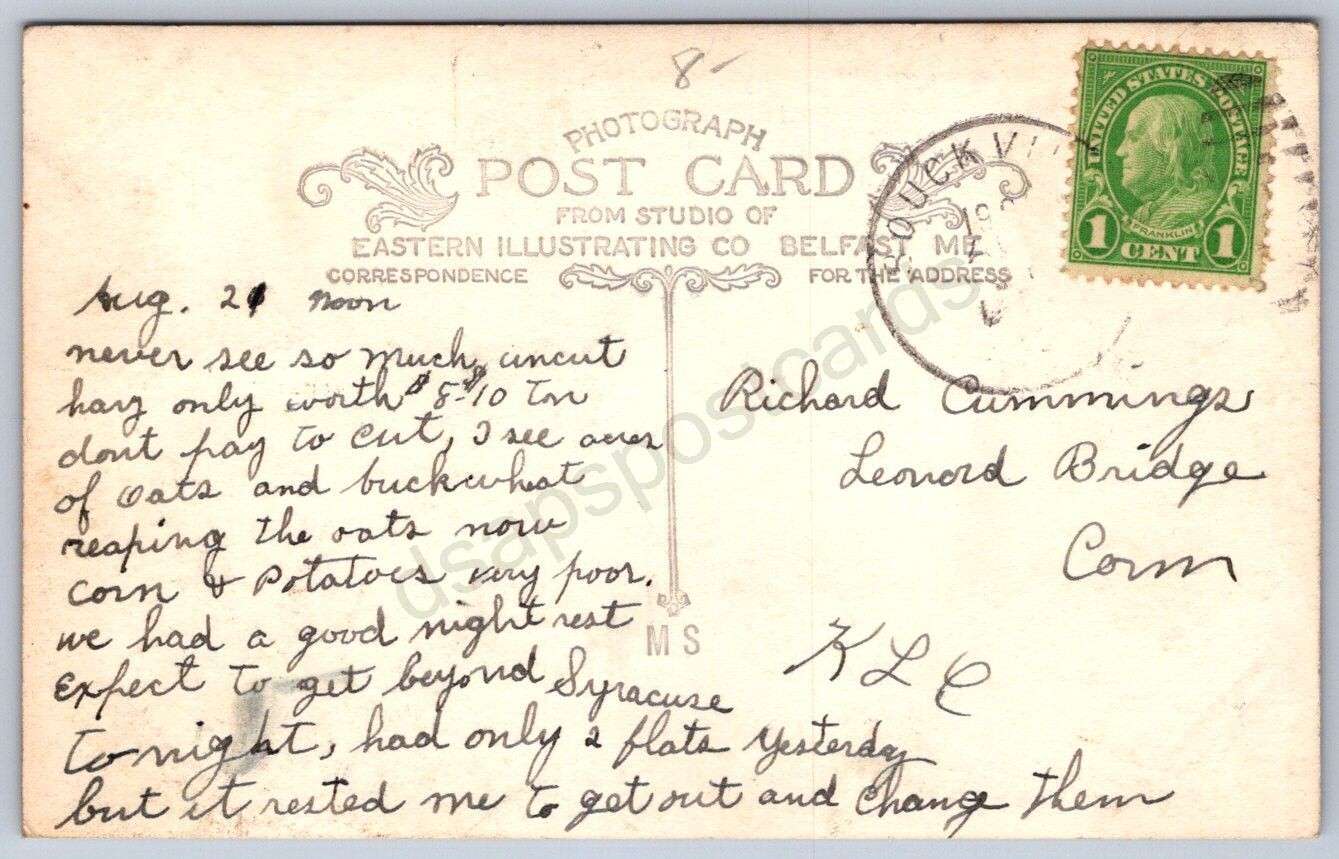 8-
PHOTOGRAPH
POST CARD
FROM STUDIO OF
EASTERN ILLUSTRATING CO BELFAST ME
CORRESPONDENCE
FOR THE ADDRESS
BOUCKVI
UNITED STATES POSTAGE
FRANKLIN
1 CENT 1
Aug. 21 noon
never see so much uncut
hay only worth $8-$10 Ton
dont pay to cut, I see acres
of oats and buckwheat
reaping the oats now
corn & Potatoes very poor.
we had a good night rest
Expect to get beyond Syracuse
tonight, had only 2 flats yesterday
but it rested me to get out and change them
Richard Cummings
Leonord Bridge
Conn
KLC
MS
dsapspostcards